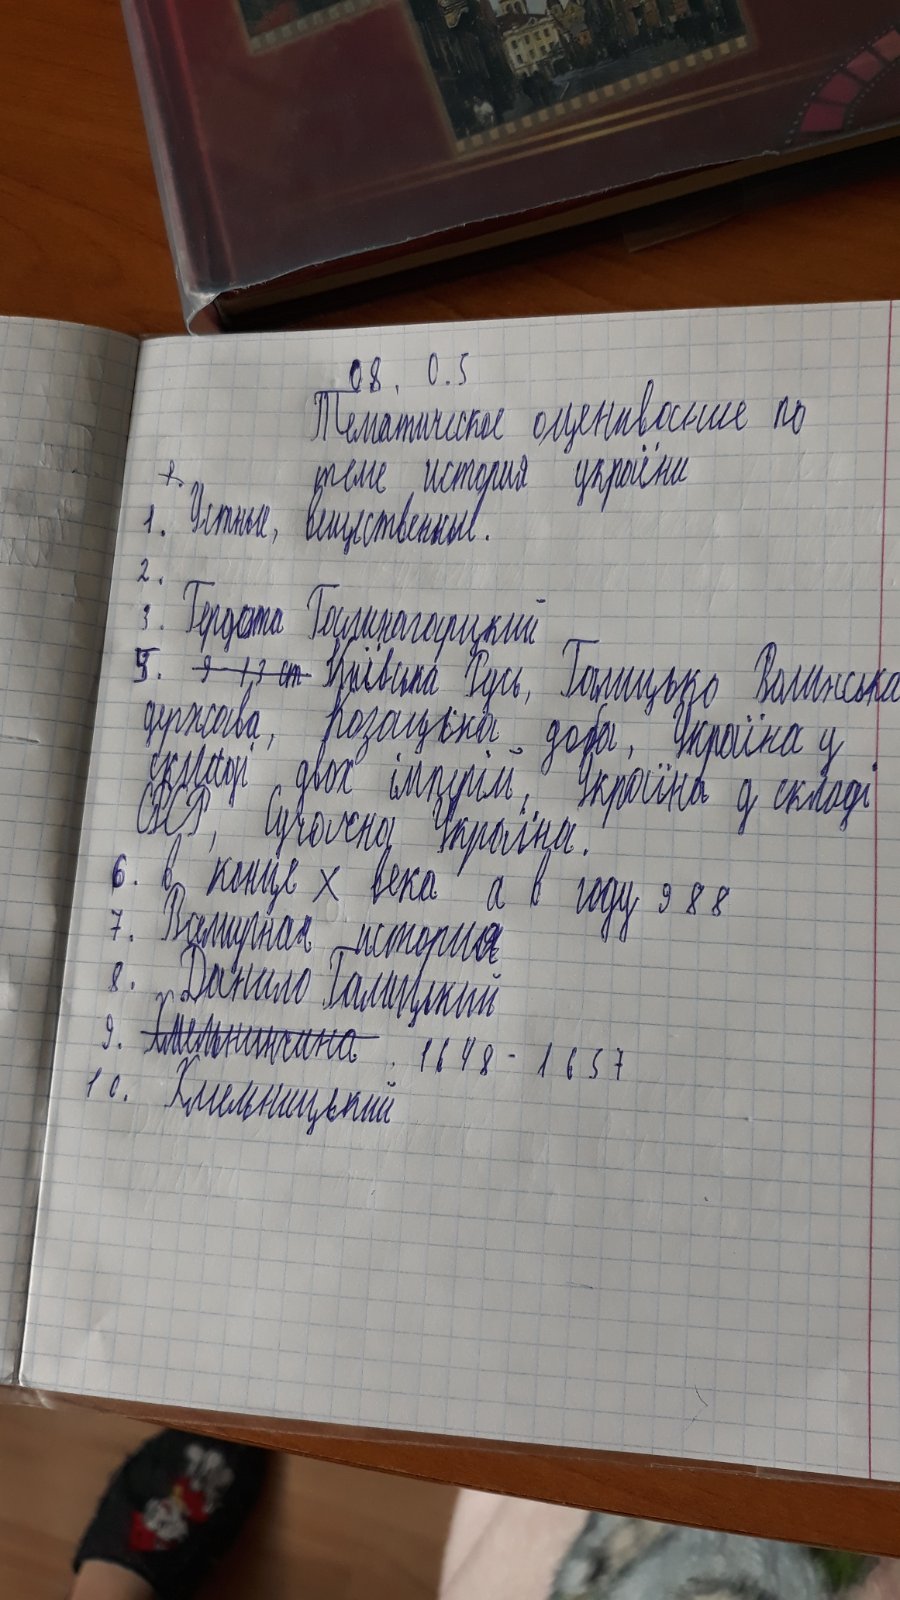 08. 0.5
Тематическое оценивание по
теме история украïни
1. Устные, вещественные.
2.
3. Гердота
5. 9-13 ст Київська Русь, Галицько Волинська
держава, козацька доба, Україна у
складі двох імперій, Україна у складі
СССР, Сучасна Україна.
6. в конце X века а в году 988
7. история
8. Данило Галицький
9. Хмельниччина. 1648-1657
10. Хмельницький